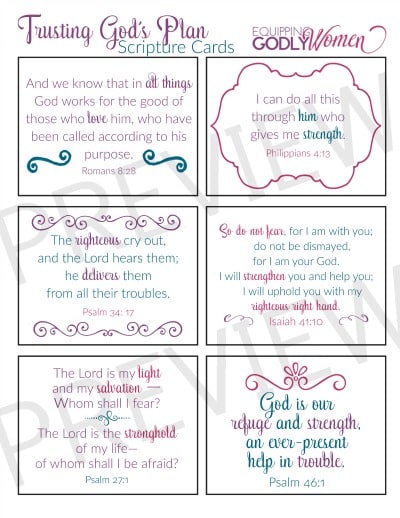 Trusting God's Plan
Scripture Cards
EQUIPPING
GODLYWomen
And we know that in all things
God works for the good of
those who love him, who have
been called according to his
purpose.
Romans 8:28
I can do all this
through him who
gives me strength.
Philippians 4:13
The righteous cry out,
and the Lord hears them;
he delivers them
from all their troubles.
Psalm 34: 17
So do not fear, for I am with you;
do not be dismayed,
for I am your God.
I will strengthen you and help you;
I will uphold you with my
righteous right hand.
Isaiah 41:10
The Lord is my light
and my salvation —
Whom shall I fear?
The Lord is the stronghold
of my life—
of whom shall I be afraid?
Psalm 27:1
God is our
refuge and strength,
an ever-present
help in trouble.
Psalm 46:1
PREVIEW
PREVIEW